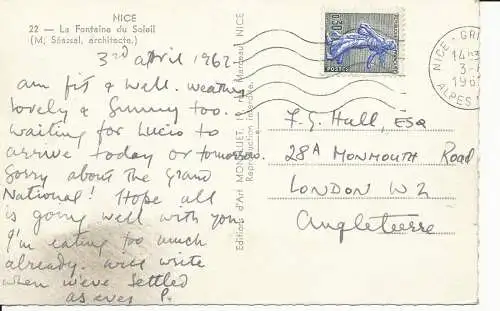 NICE
22 - La Fontaine du Soleil
(M. Sénssal, architecte.)
3rd april 1962
am fit & well. weather
lovely & sunny too.
waiting for Lucio to
arrive today or tomorrow.
Sorry about the Grand
National! Hope all
is going well with you
I'm eating too much
already. will write
when we've settled
as ever P.
Editions d'Art
Marceau, NICE
Reproduction interdite.
0,30
POSTES
NICE - GR
14
3-
196
ALPES
F. G. Hull, ESQ
28A MONMOUTH Road
LONDON W2
Angleterre